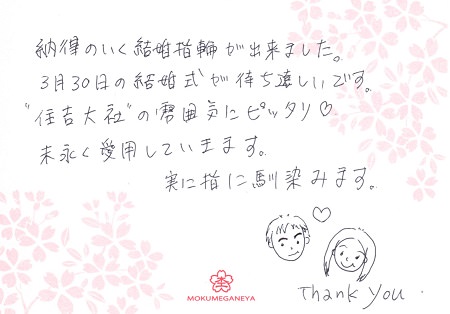 納得のいく結婚指輪が出来ました。
3月30日の結婚式が待ち遠しいです。
"住吉大社"の雰囲気にピッタリ♡
末永く愛用していきます。
実に指に馴染みます。
MOKUMEGANEYA
Thank you.